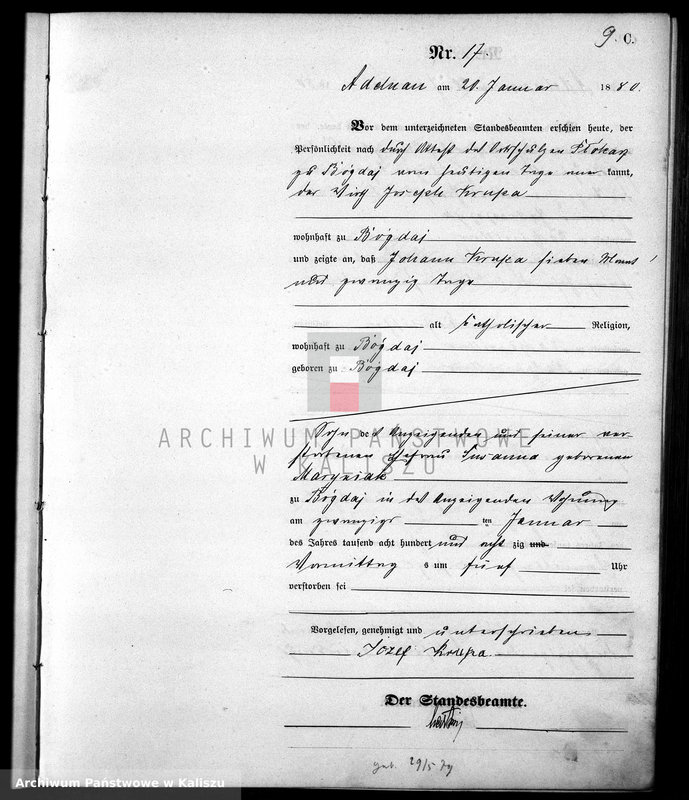 9 C.
Nr. 17.
Adelnau am 20. Januar 1880.
Vor dem unterzeichneten Standesbeamten erschien heute, der
Persönlichkeit nach durch Attest des Ortsschulzen
zu Bógdaj vom heutigen Tage aner kannt,
der Wirth Joseph Krupa
wohnhaft zu Bógdaj
und zeigte an, daß Johann Krupa sieben Monat
und zwanzig Tage
alt katholischer Religion,
wohnhaft zu Bógdaj
geboren zu Bógdaj
Sohn des Anzeigenden und seiner ver-
storbenen Ehefrau Susanna geborenen
Maryniak
ARCHIWUM PAŃSTWOWE
W KALISZU
zu Bógdaj in des Anzeigenden Wohnung
am zwanzigs ten Januar
des Jahres tausend acht hundert und acht zig und
Vormittag s um fünf Uhr
verstorben sei
Vorgelesen, genehmigt und unterschrieben
Józef Krupa
Der Standesbeamte.
geb. 29/5 79
Archiwum Państwowe w Kaliszu